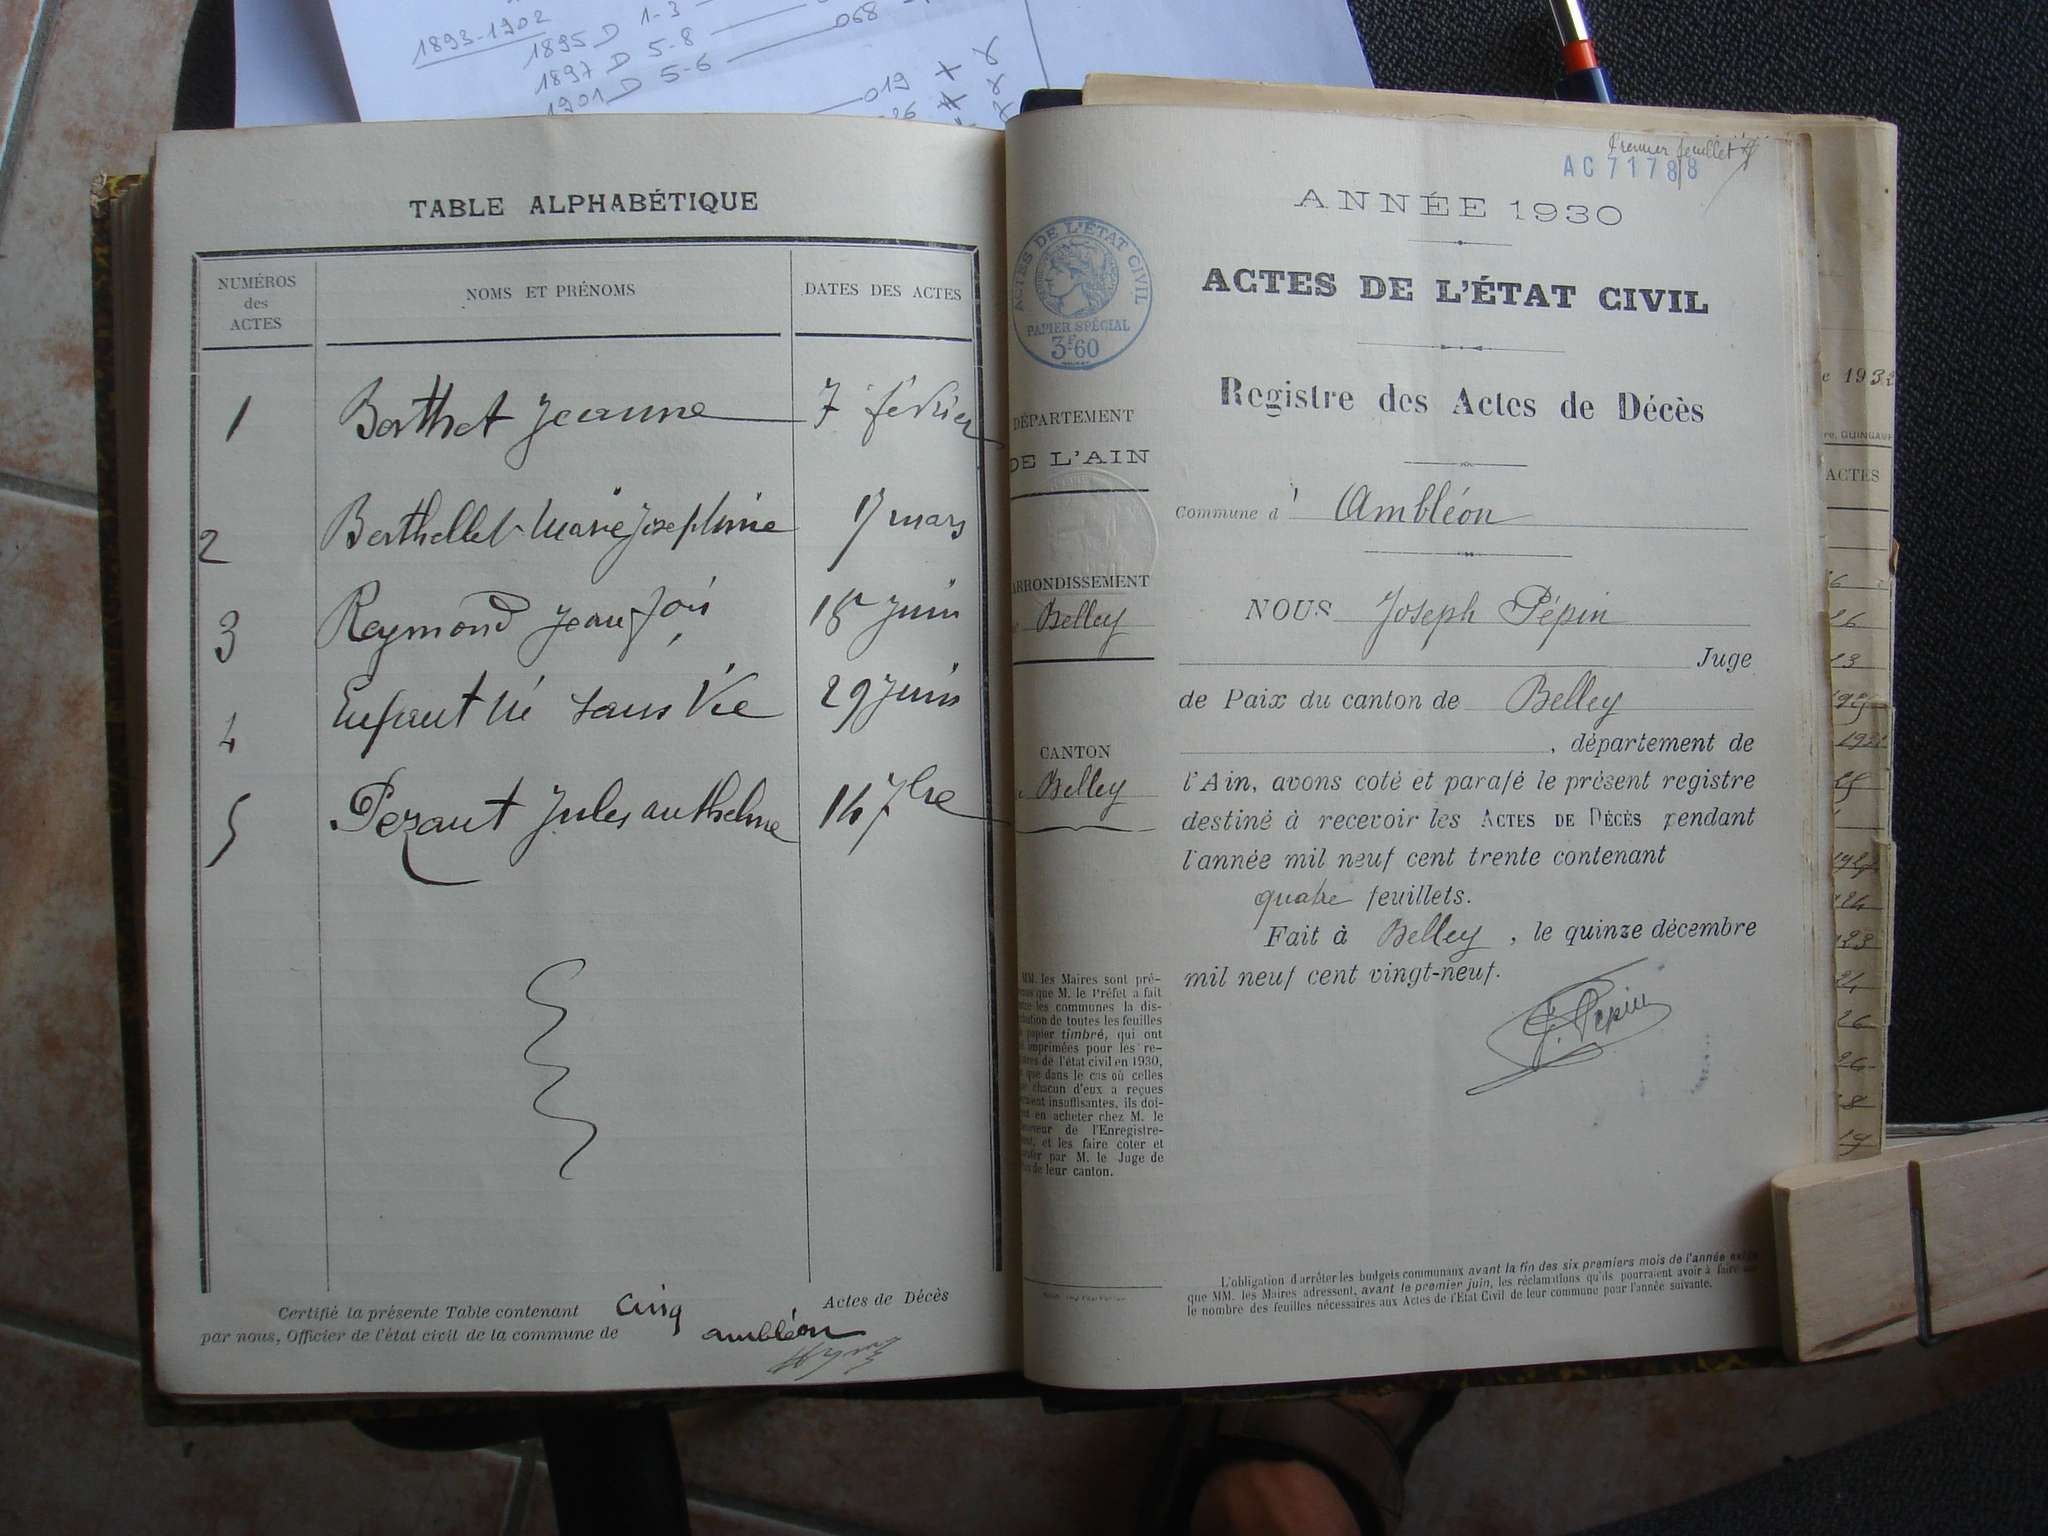 1893-1902
1895 D 1-3
1897 D 5-8 068
1901 D 5-6
019 x
26
TABLE ALPHABÉTIQUE
NUMÉROS des ACTES
NOMS ET PRÉNOMS
DATES DES ACTES
1 Berthet Jeanne 7 février
2 Berthellet Marie Josephine 17 mars
3 Raymond Jean 18 Juin
4 Enfant né sans Vie 29 Juin
5 Pezant Jules anthelme 14 7bre
Certifié la présente Table contenant cinq Actes de Décès
par nous, Officier de l'état civil de la commune de ambléon
Premier feuillet
AC 71788
ANNÉE 1930
ACTES DE L'ÉTAT CIVIL
PAPIER SPÉCIAL
3F60
ACTES DE L'ÉTAT CIVIL
Registre des Actes de Décès
DÉPARTEMENT
DE L'AIN
ARRONDISSEMENT
Belley
CANTON
Belley
MM. les Maires sont pré-
que M. le Préfet a fait
les communes la dis-
de toutes les feuilles
papier timbré, qui ont
imprimées pour les re-
de l'état civil en 1930,
que dans le cas où celles
chacun d'eux a reçues
insuffisantes, ils doi-
en acheter chez M. le
de l'Enregistre-
et les faire coter et
par M. le Juge de
de leur canton.
Commune d' Ambléon
NOUS Joseph Pépin
Juge
de Paix du canton de Belley
, département de
l'Ain, avons coté et parafé le présent registre
destiné à recevoir les ACTES DE DÉCÈS pendant
l'année mil neuf cent trente contenant
quatre feuillets.
Fait à Belley, le quinze décembre
mil neuf cent vingt-neuf.
J. Pépin
L'obligation d'arrêter les budgets communaux avant la fin des six premiers mois de l'année exige
que MM. les Maires adressent, avant le premier juin, les réclamations qu'ils pourraient avoir à faire sur
le nombre des feuilles nécessaires aux Actes de l'État Civil de leur commune pour l'année suivante.
1932
GUINGAMP
ACTES
16
13
1925
24
23
24
26
26
8
19